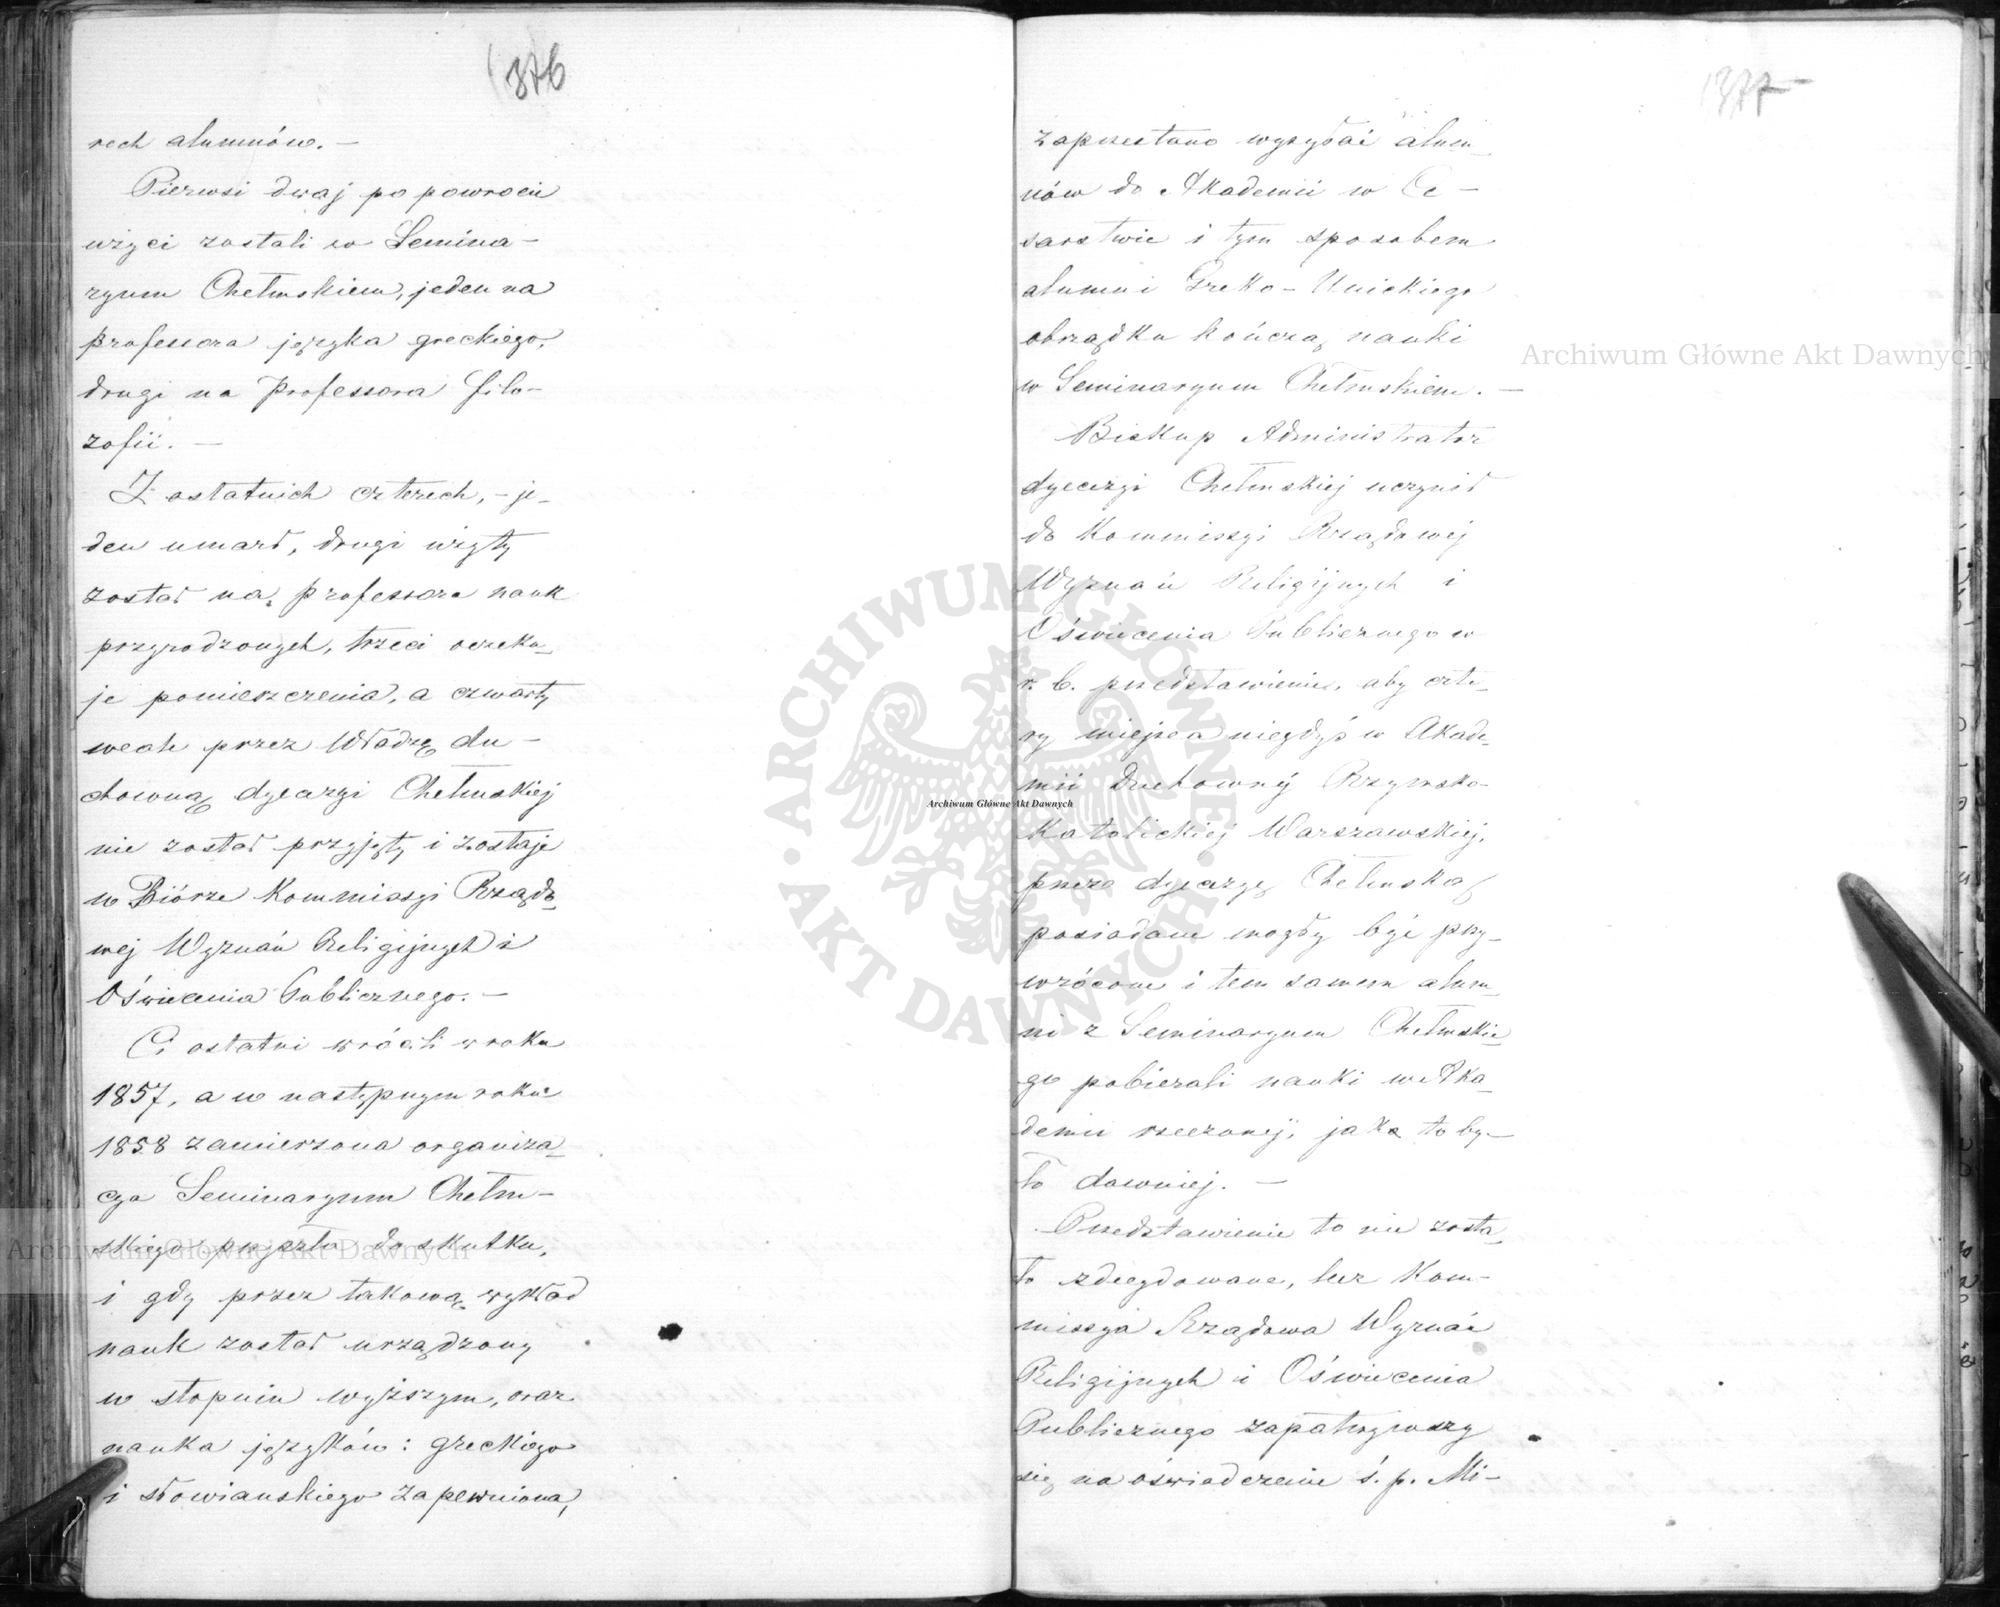 376
rech alumnów. —
Pierwsi dwaj po powrocie
użyci zostali w Semina-
ryum Chełmskiem, jeden na
professora języka greckiego,
drugi na Professora filo-
zofii. —
Z ostatnich czterech, - je-
den umarł, drugi użyty
został na professora nauk
przyrodzonych, trzeci oczeku-
je pomieszczenia, a czwarty
weale przez Władzę du-
chowną dyecezyi Chełmskiej
nie został przyjęty i zostaje
w Biórze Kommissyi Rządo-
wej Wyznań Religijnych i
Oświecenia Publicznego. —
Ci ostatni wrócili w roku
1857, a w następnym roku
1858 zamierzona organiza-
cya Seminaryum Chełm-
skiego przyszła do skutku,
i gdy przez takową wykład
nauk został urządzony
w stopniu wyższym, oraz
nauka języków: greckiego
i słowiańskiego zapewniona,
377
zaprzestano wysyłać alum-
nów do Akademii w Ce-
sarstwie i tym sposobem
alumni Greko-Unickiego
obrządku kończą nauki
w Seminaryum Chełmskiem. —
Biskup Administrator
dyecezyi Chełmskiej uczynił
do Kommissyi Rządowej
Wyznań Religijnych i
Oświecenia Publicznego w
r. b. przedstawienie, aby czte-
ry miejsca niegdyś w Akade-
mii Duchownej Rzymsko-
Katolickiej Warszawskiej,
przez dyecezyę Chełmską
posiadane mogły być przy-
wrócone i tem samem alum-
ni z Seminaryum Chełmskie-
go pobierali nauki w Aka-
demii rzeczonej, jako to by-
ło dawniej. —
Przedstawienie to nie zosta-
ło zdecydowane, lecz Kom-
missya Rządowa Wyznań
Religijnych i Oświecenia
Publicznego zapatrzywszy
się na oświadczenie ś. p. Mi-
Archiwum Główne Akt Dawnych
Archiwum Główne Akt Dawnych
Archiwum Główne Akt Dawnych
ARCHIWUM GŁÓWNE AKT DAWNYCH